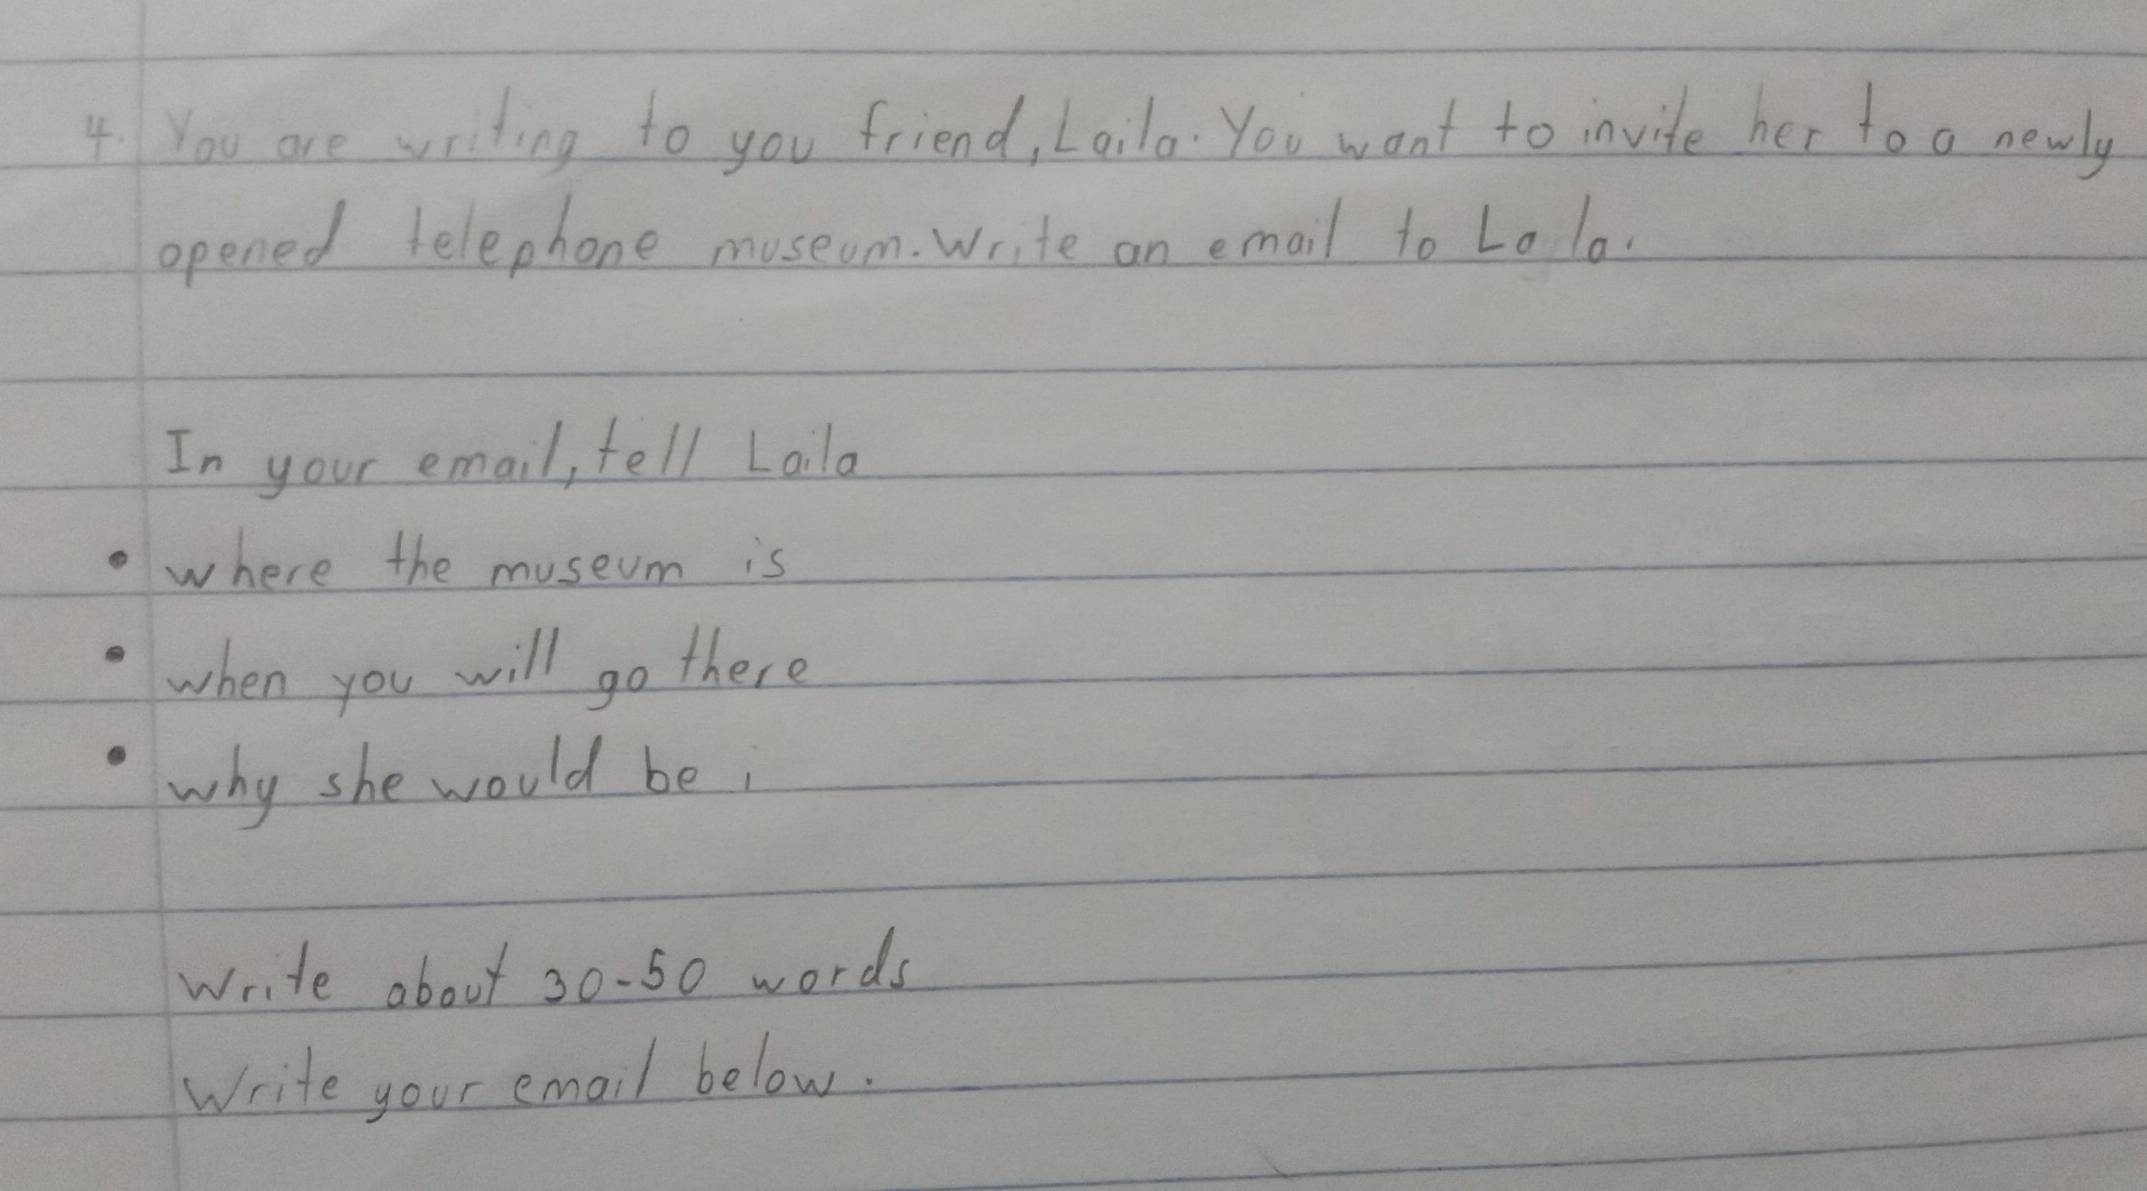 4. You are writing to you friend, Laila. You want to invite her to a newly
opened telephone museum. Write an email to Laila.
In your email, tell Laila
• where the museum is
• when you will go there
• why she would be i
Write about 30-50 words
Write your email below.